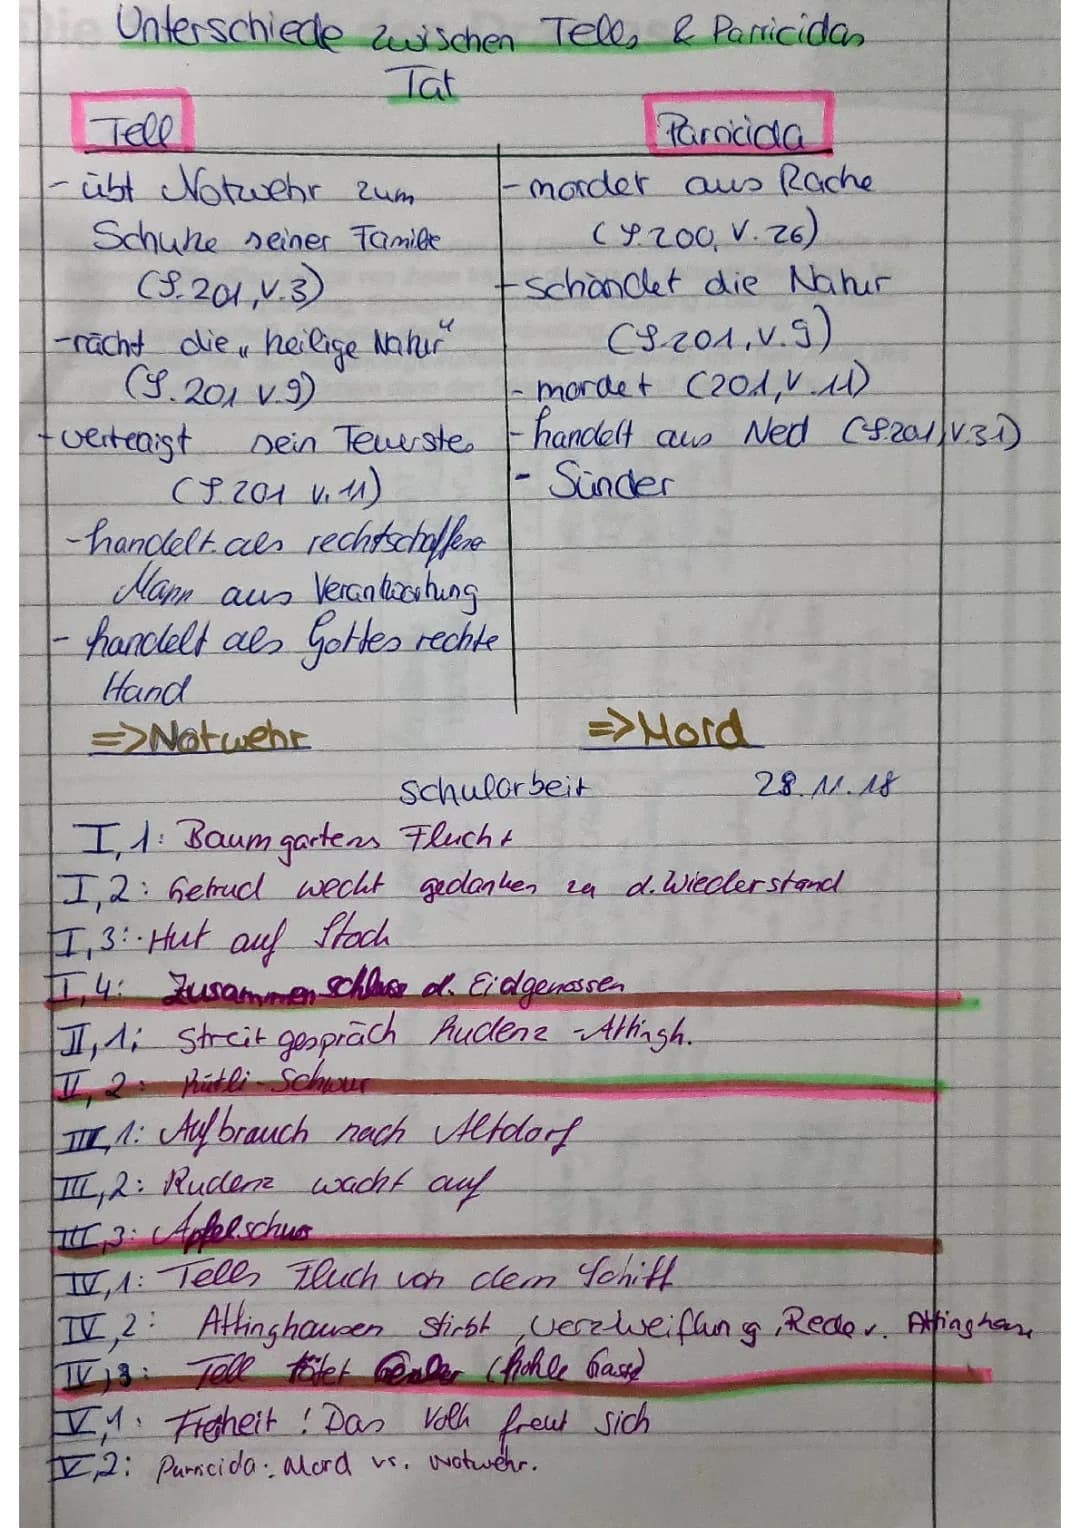 Unterschiede zwischen Tells & Parricidas
Tat
Tell
Parricida
- übt Notwehr zum
Schutze seiner Familie
(S.201,V.3)
- rächt die „heilige Natur"
(S.201 V.9)
- verteaigt sein Teuerstes
(S.201 V.11)
- handelt als rechtschaffene
Mann aus Verantwortung
- handelt als Gottes rechte
Hand
=> Notwehr
- mordet aus Rache
(S.200, V.26)
- schändet die Natur
(S.201,V.9)
- mordet (201,V.11)
- handelt aus Neid (S.201,V.31)
- Sünder
=> Mord
Schularbeit 28.11.18
I,1: Baumgartens Flucht
I,2: Getrud weckt gedanken zu d. Wiederstand
I,3: Hut auf Stock
I,4: Zusammenschluss d. Eidgenossen
II,1: Streitgespräch Rudenz - Attingh.
II,2: Rütli-Schwur
III,1: Aufbrauch nach Altdorf
III,2: Rudenz wacht auf
III,3: Apfelschus
IV,1: Tells Fluch von dem Schiff
IV,2: Attinghausen stirbt, Verzweiflung, Rede v. Attinghause
IV,3: Tell tötet Gessler (hohle Gasse)
V,1: Freiheit! Das Volk freut sich
V,2: Parricida: Mord vs. Notwehr.